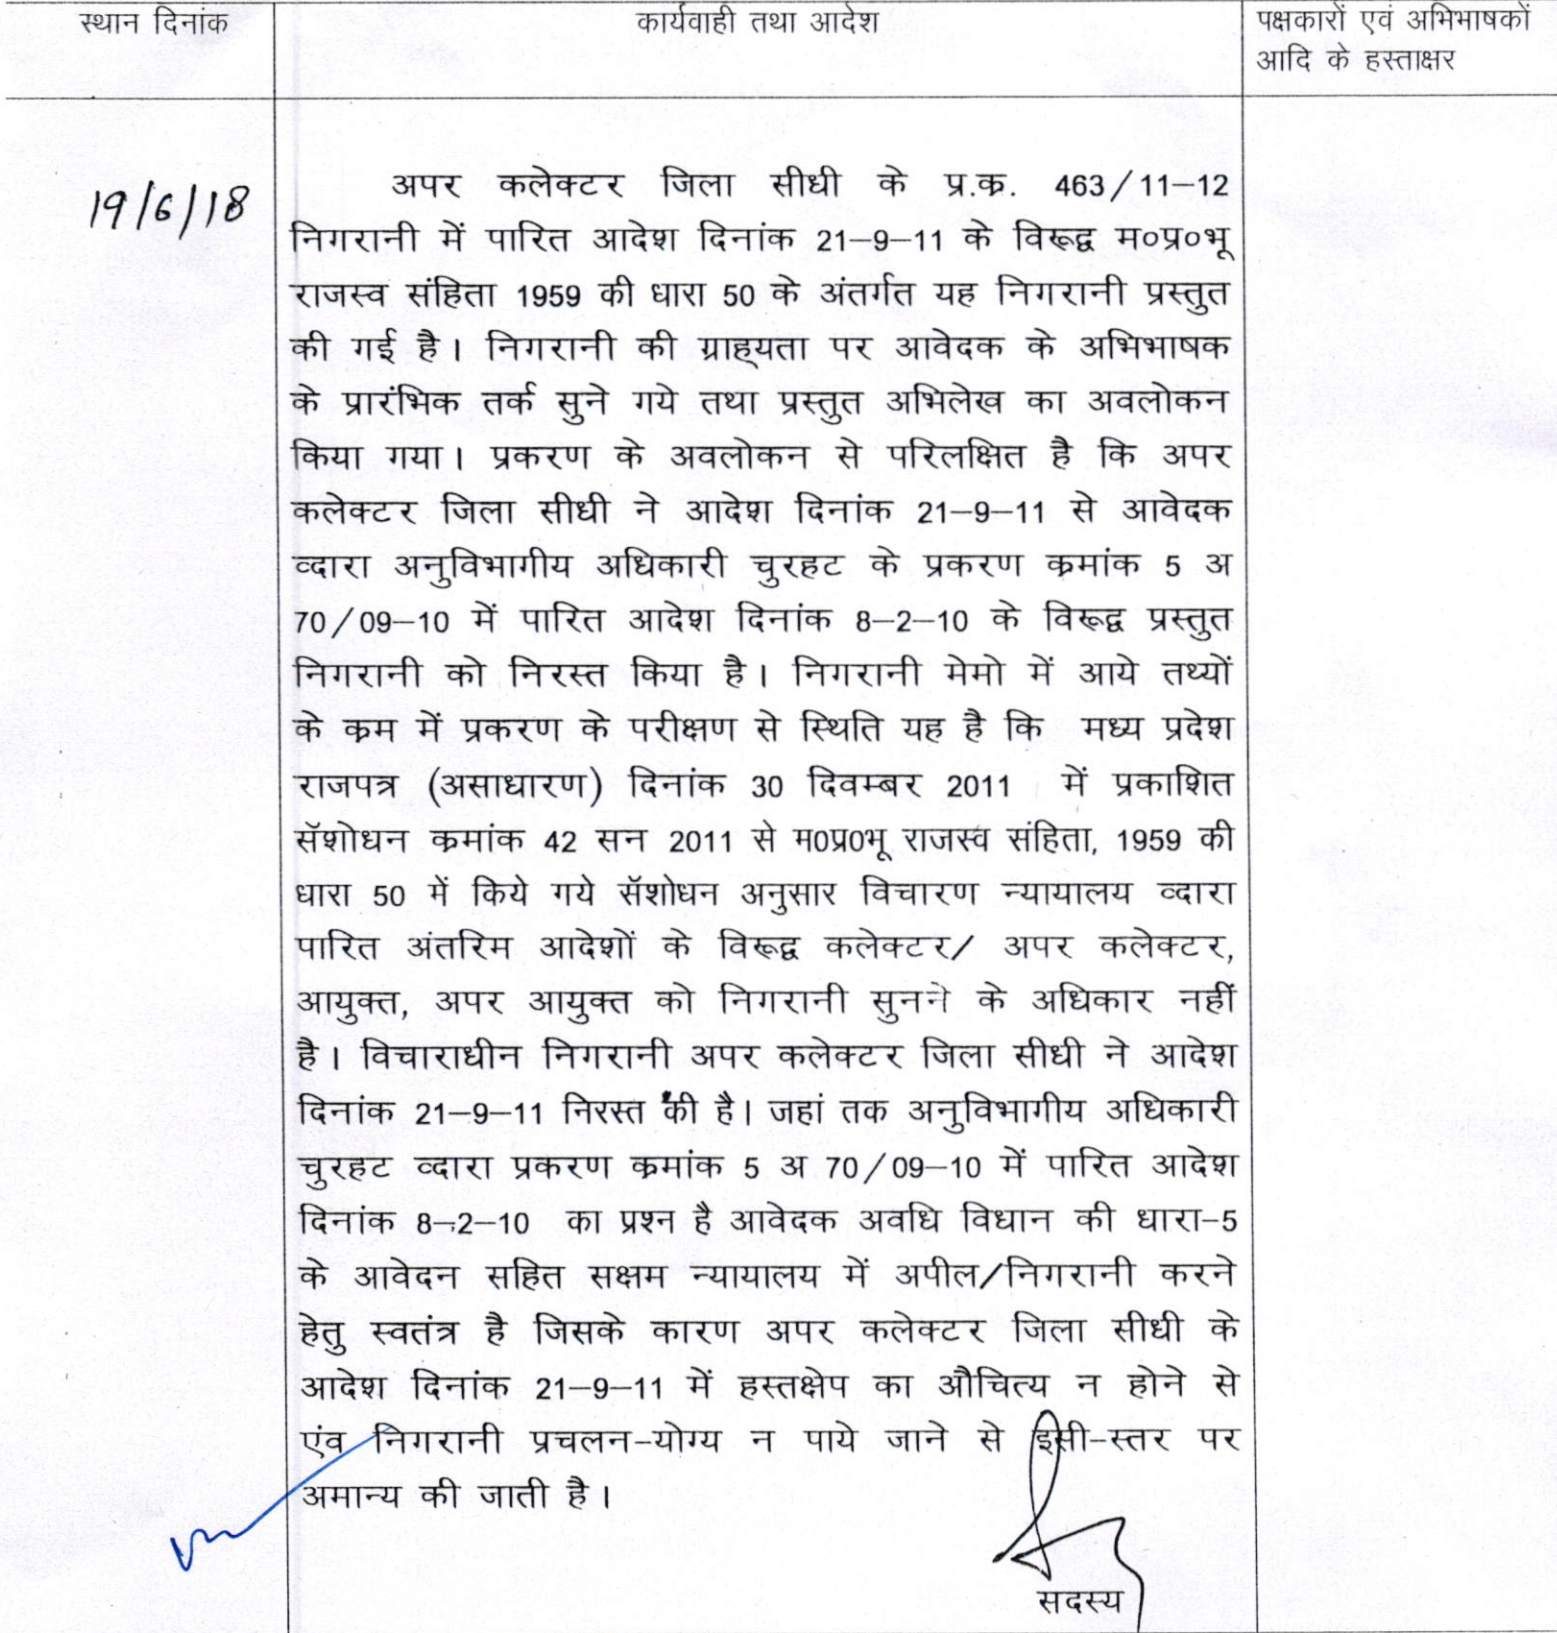 स्थान दिनांक
कार्यवाही तथा आदेश
पक्षकारों एवं अभिभाषकों
आदि के हस्ताक्षर
19/6/18
अपर कलेक्टर जिला सीधी के प्र.क्र. 463/11–12
निगरानी में पारित आदेश दिनांक 21–9–11 के विरूद्व म०प्र०भू
राजस्व संहिता 1959 की धारा 50 के अंतर्गत यह निगरानी प्रस्तुत
की गई है। निगरानी की ग्राह्यता पर आवेदक के अभिभाषक
के प्रारंभिक तर्क सुने गये तथा प्रस्तुत अभिलेख का अवलोकन
किया गया। प्रकरण के अवलोकन से परिलक्षित है कि अपर
कलेक्टर जिला सीधी ने आदेश दिनांक 21–9–11 से आवेदक
व्दारा अनुविभागीय अधिकारी चुरहट के प्रकरण क्रमांक 5 अ
70/09–10 में पारित आदेश दिनांक 8–2–10 के विरूद्व प्रस्तुत
निगरानी को निरस्त किया है। निगरानी मेमो में आये तथ्यों
के क्रम में प्रकरण के परीक्षण से स्थिति यह है कि मध्य प्रदेश
राजपत्र (असाधारण) दिनांक 30 दिवम्बर 2011 में प्रकाशित
सॅशोधन क्रमांक 42 सन 2011 से म0प्र0भू राजस्व संहिता, 1959 की
धारा 50 में किये गये सॅशोधन अनुसार विचारण न्यायालय व्दारा
पारित अंतरिम आदेशों के विरूद्व कलेक्टर/ अपर कलेक्टर,
आयुक्त, अपर आयुक्त को निगरानी सुनने के अधिकार नहीं
है। विचाराधीन निगरानी अपर कलेक्टर जिला सीधी ने आदेश
दिनांक 21–9–11 निरस्त की है। जहां तक अनुविभागीय अधिकारी
चुरहट व्दारा प्रकरण क्रमांक 5 अ 70/09–10 में पारित आदेश
दिनांक 8–2–10 का प्रश्न है आवेदक अवधि विधान की धारा-5
के आवेदन सहित सक्षम न्यायालय में अपील/निगरानी करने
हेतु स्वतंत्र है जिसके कारण अपर कलेक्टर जिला सीधी के
आदेश दिनांक 21–9–11 में हस्तक्षेप का औचित्य न होने से
एंव निगरानी प्रचलन-योग्य न पाये जाने से इसी-स्तर पर
अमान्य की जाती है।
सदस्य